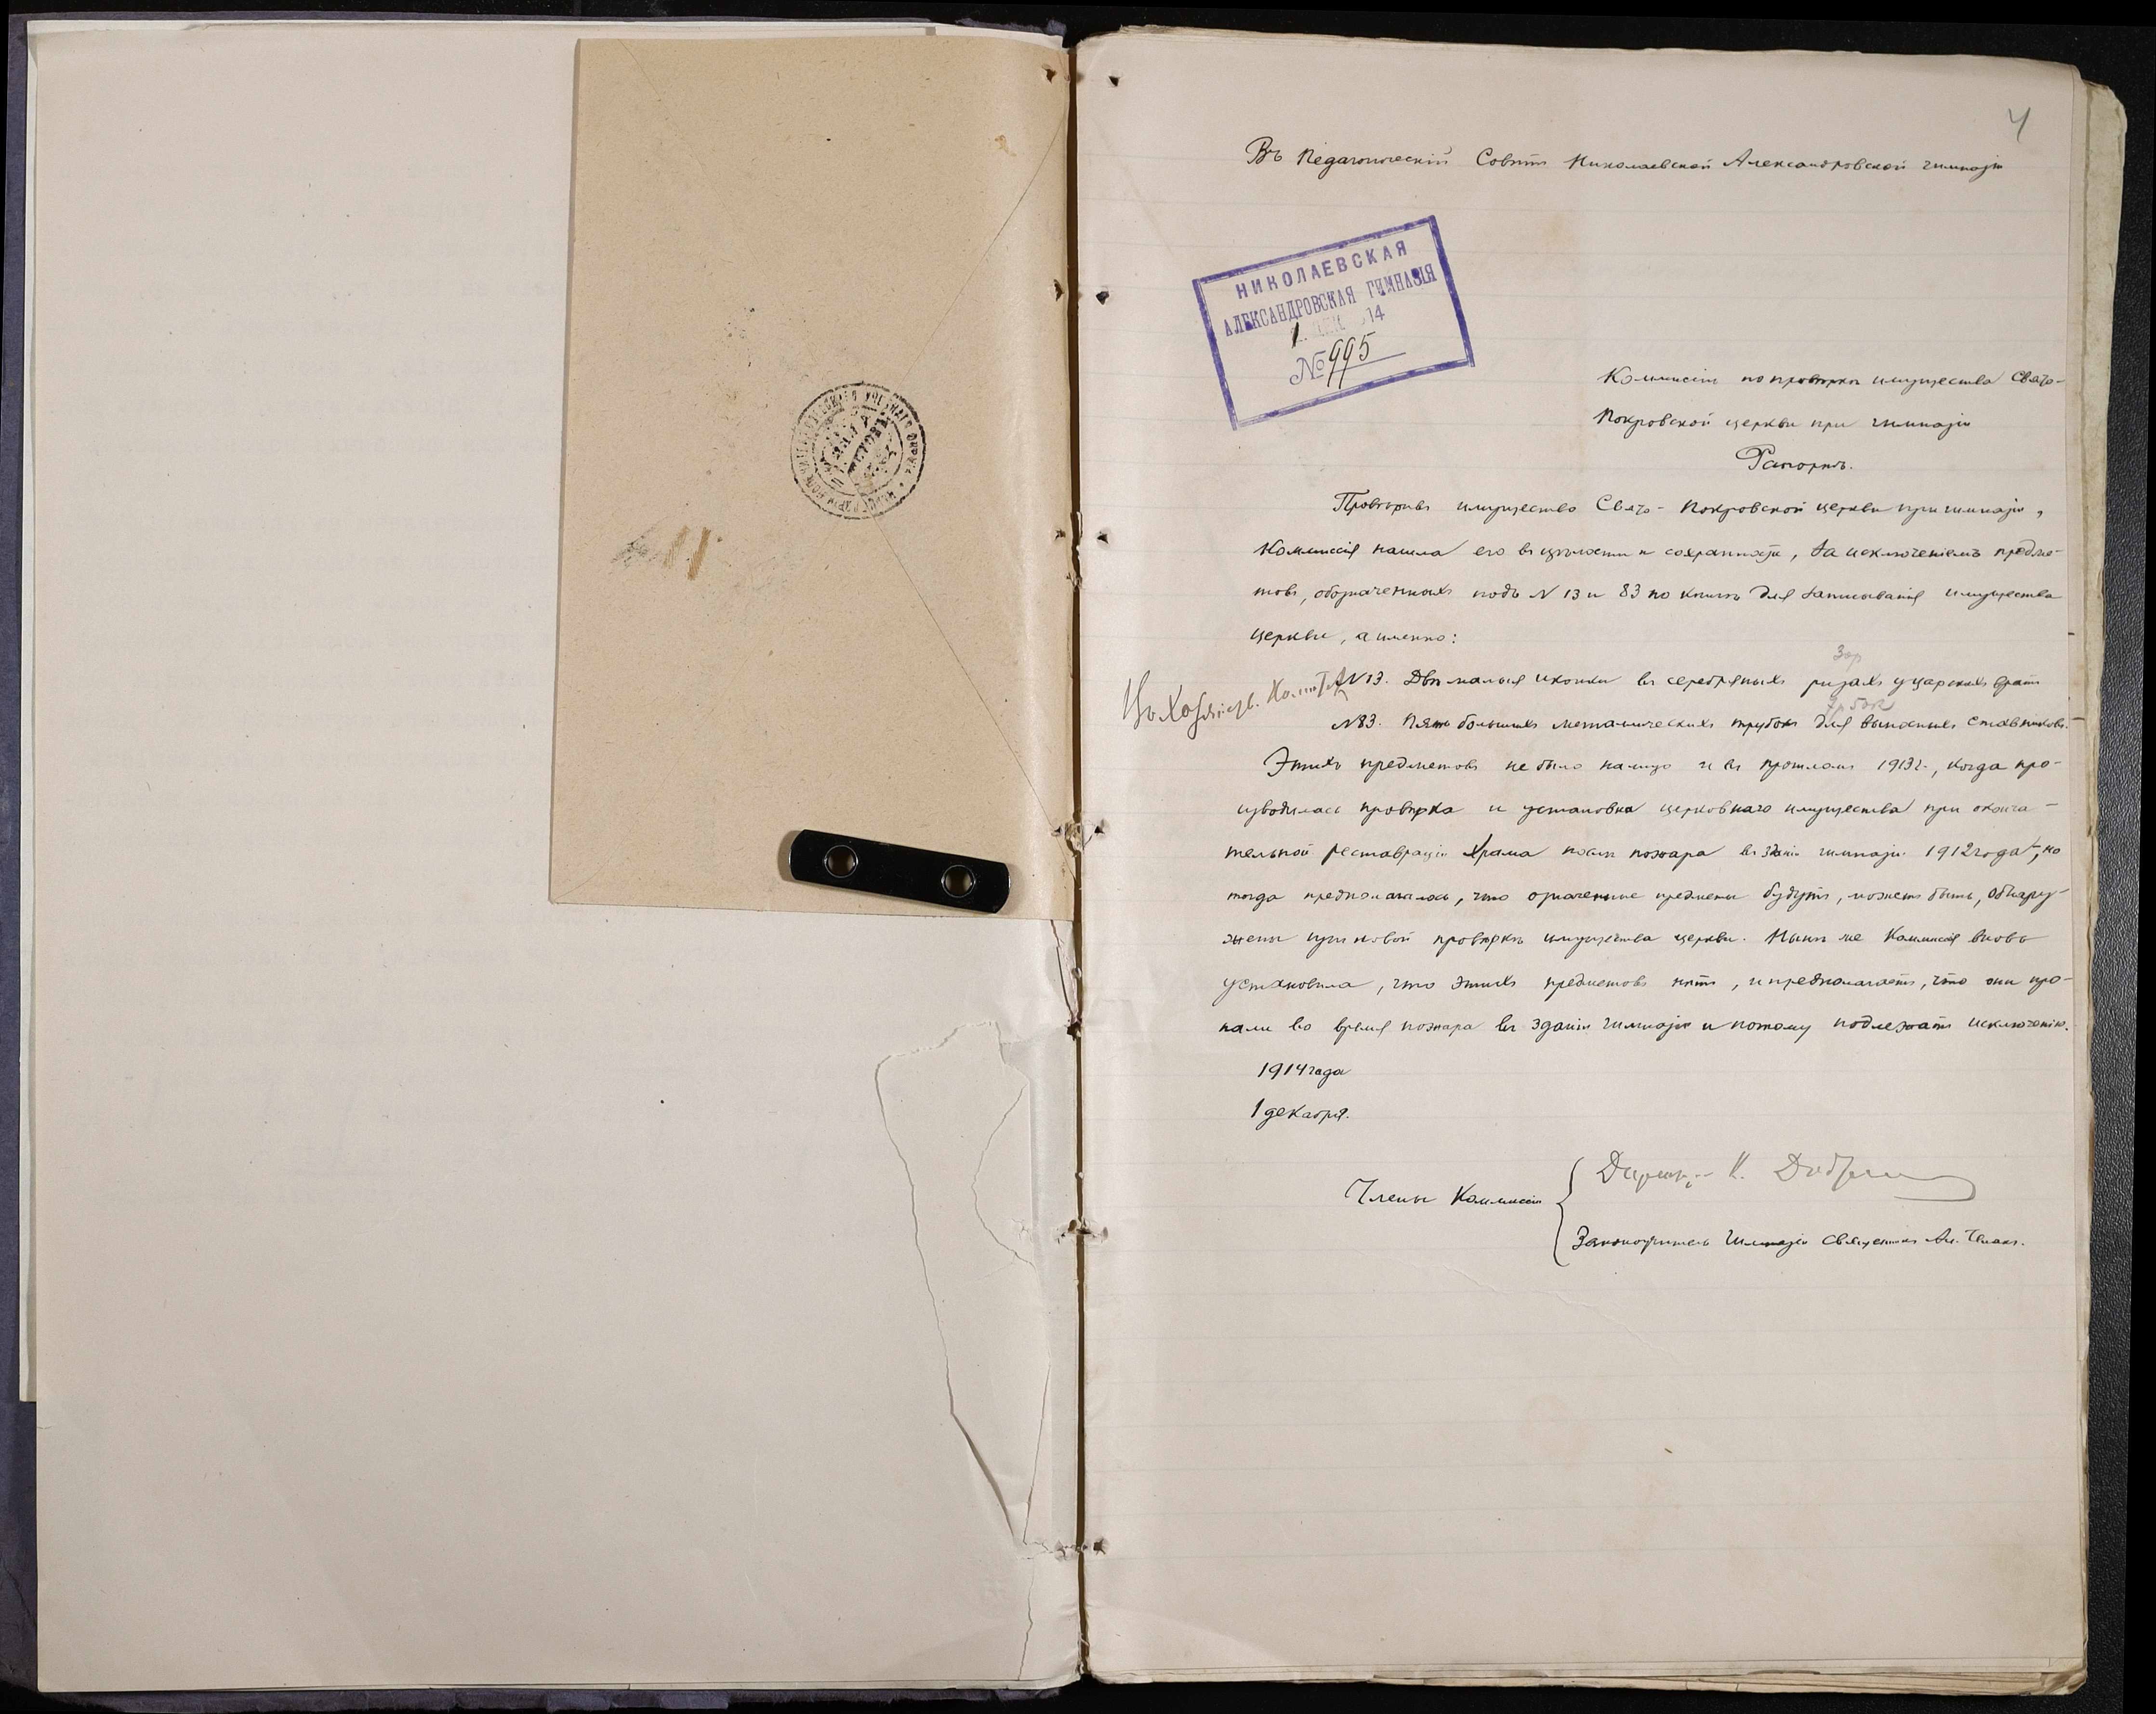 4
Въ Педагогическій Совѣтъ Николаевской Александровской гимназіи
НИКОЛАЕВСКАЯ
АЛЕКСАНДРОВСКАЯ ГИМНАЗІЯ
1 ДЕК 1914
№ 995
Коммиссіи по провѣркѣ имущества Свято-
Покровской церкви при гимназіи
Рапортъ.
Провѣривъ имущество Свято-Покровской церкви при гимназіи,
Коммиссія нашла его въ цѣлости и сохранности, за исключеніемъ предме-
товъ, обозначенныхъ подъ N 13 и 83 по книгѣ для записыванія имущества
церкви, а именно:
N 13. Двѣ малыя иконки въ серебряныхъ ризахъ у царскихъ вратъ
Въ Хозяйств. Комитетъ
N 83. Пять большихъ металическихъ трубокъ для выносныхъ ставниковъ.
Этихъ предметовъ не было налицо и въ прошломъ 1913 г., когда про-
изводилась провѣрка и установка церковнаго имущества при оконча-
тельной реставраціи Храма послѣ пожара въ зданіи гимназіи 1912 года, но
тогда предполагалось, что означенные предметы будутъ, можетъ быть, обнару-
жены при новой провѣркѣ имущества церкви. Нынѣ же Коммиссія вновь
установила, что этихъ предметовъ нѣтъ, и предполагаетъ, что они про-
пали во время пожара въ зданіи гимназіи и потому подлежатъ исключенію.
1914 года
1 декабря.
Члены Коммиссіи
Директоръ К.
Законоучитель Гимназіи Священникъ Ал.